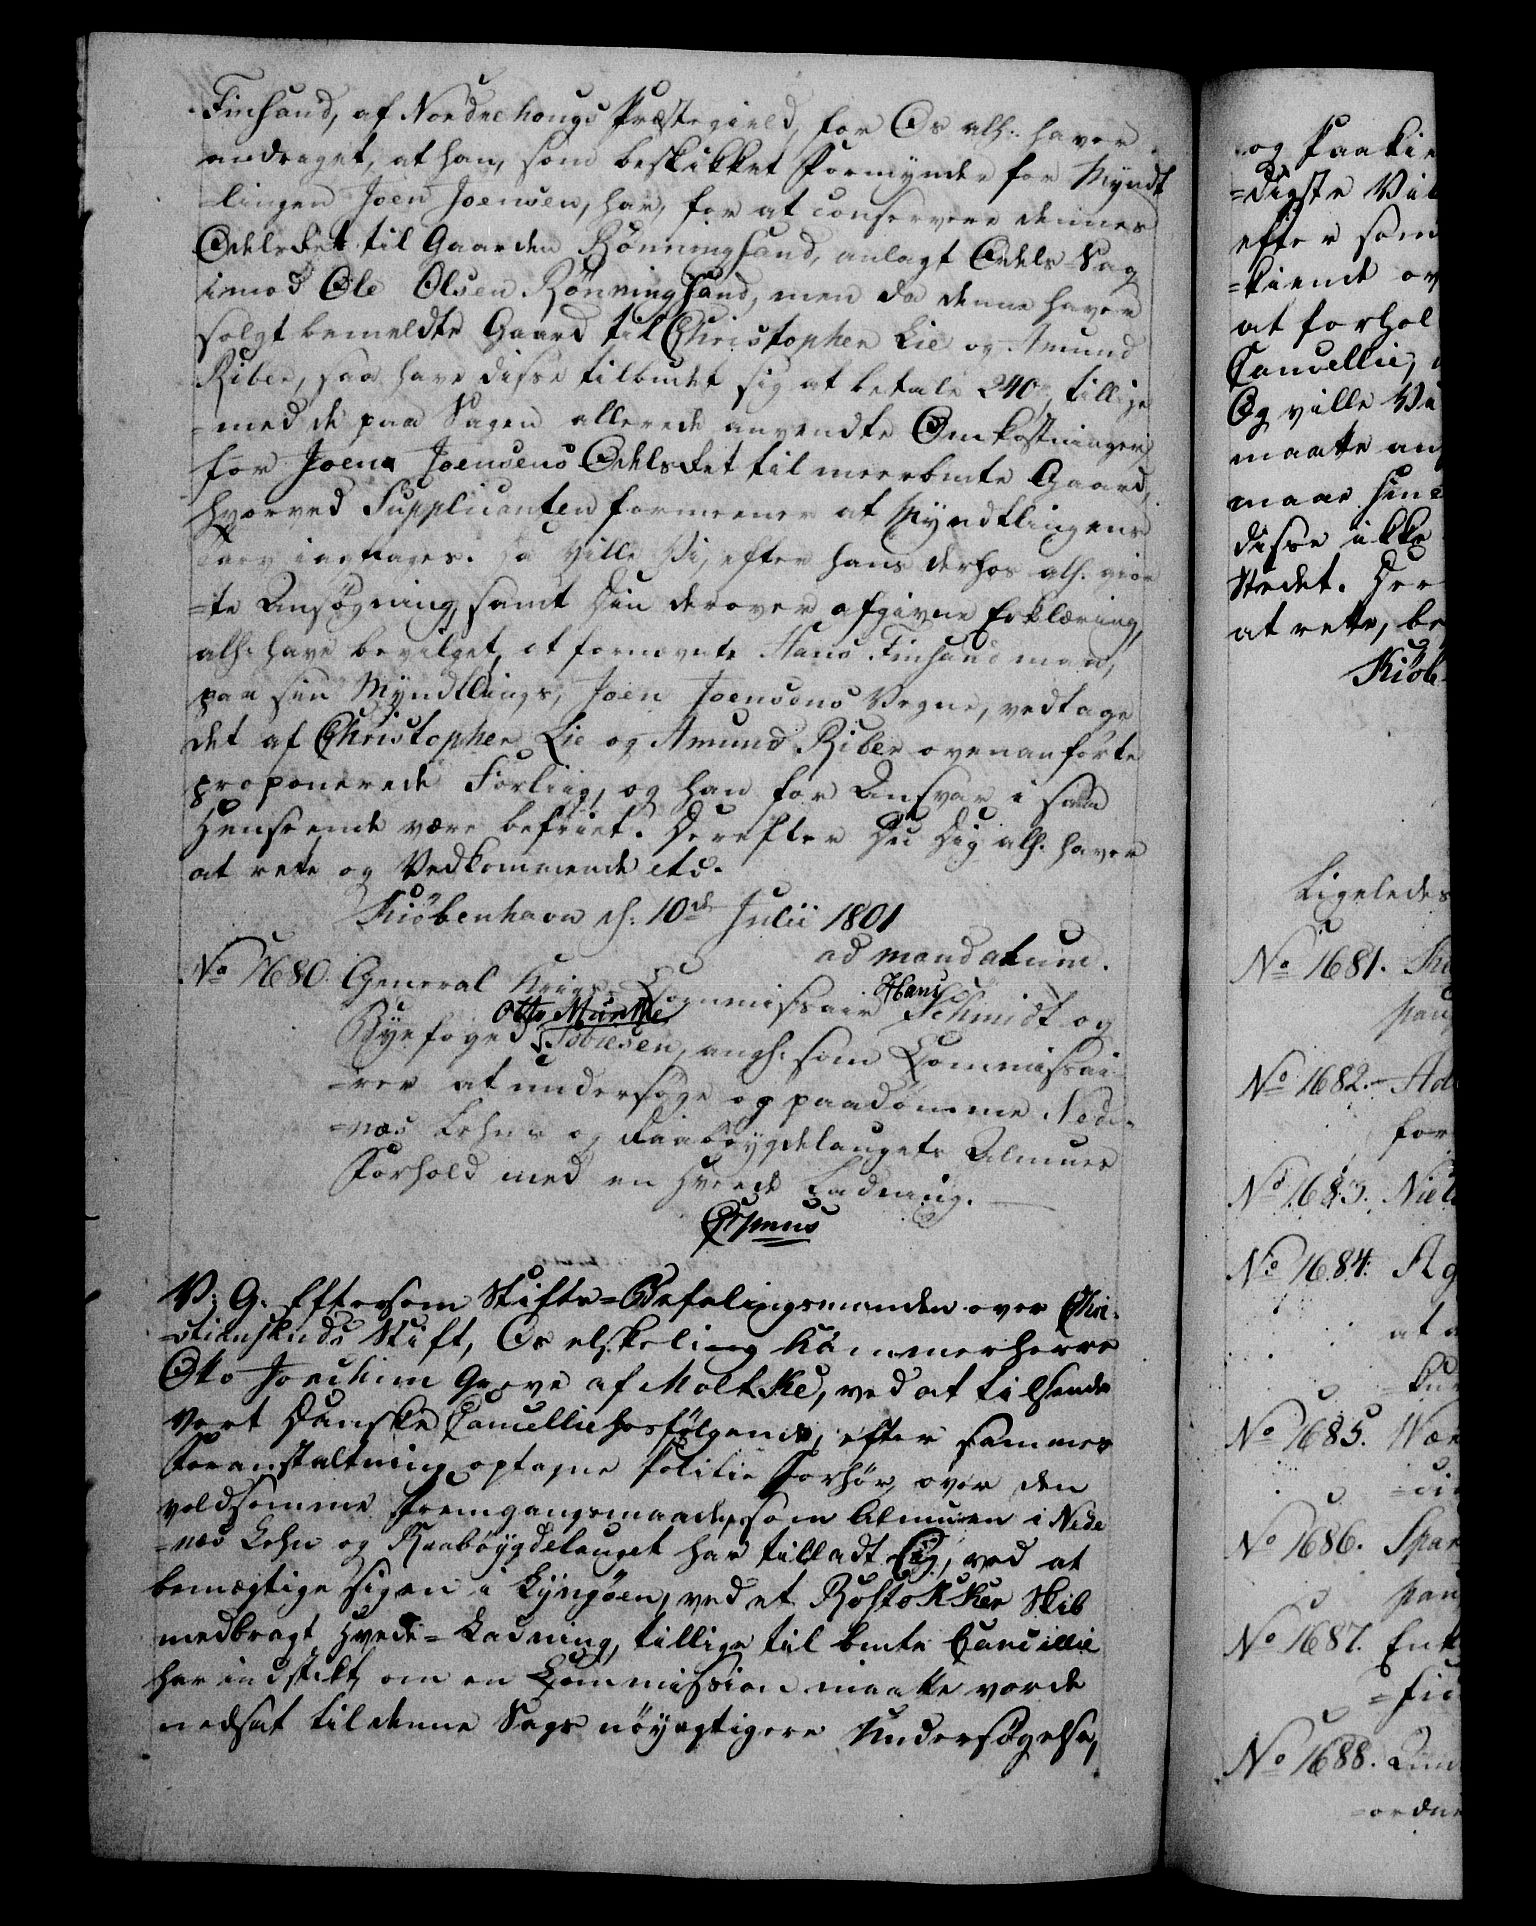 Finsand, af Nordrehougs Præstegield, for Os alh. haver
andraget, at han, som beskikket Formynder for Mynd-
-lingen Joen Joensen, har, for at conservere dennes
Odelsret til Gaarden Rønningsand, anlagt Odels-Sag
imod Ole Olsen Rønningsand, men da denne haver
solgt bemeldte Gaard til Christopher Lie og Amund
Riber, saa have disse tilbudet sig at betale 240, tillige
-med de paa Sagen allerede anvendte Omkostninger
for Joen Joensens Odelsret til meerbmte Gaard,
hvorved Supplicanten formeener at Myndtlingens
Tarv iagttages. Da ville Vi, efter hans derhos alh. gior
-te Ansøgning, samt Din derover afgivne Erklæring,
alh. have bevilget, at fornævnte Hans Finsand maa,
paa sin Myndtlings, Joen Joensens Vegne, vedtage
det af Christopher Lie og Amund Riber ovenanførte
proponerede Forliig, og han for Ansvar i saa
Henseende være befriet. Derefter Du Dig alh. haver
at rette og Vedkommende etc.
Kiøbenhavn d. 10de Julii 1801
ad mandatum.
No 1680. General Krigs-Commissair Hans Schmidt og
Byefoged Otto Munthe Tobiesen, angh. som Commissai-
-rer at undersøge og paadømme Nede-
-næs Lehns og Raabøygdelaugets Almues
Forhold med en Hvede Ladning.
Expens
V. G. Eftersom Stifts-Befalingsmanden over Chri-
-stiansands Stift, Os elskelig Kammerherre
Otto Joachim Greve af Moltke, ved at tilsende
Vort Danske Cancellie hosfølgende, efter sammes
Foranstaltning optagne Politie Forhør, over den
voldsomme Fremgangsmaade, som Almuen i Nede
-næs Lehn og Raabøygdelauget har tilladt sig, ved at
bemægtige sig en i Lyngøen, ved et Rostokker Skib
medbragt Hvede-Ladning, tillige til bmte Cancellie
har indstilt, om en Commission maatte vorde
nedsat til denne Sags nøyagtigere Undersøgelse,
og Paakie
-digste Vil
efter som
-kiende ov
at forhol
Cancellie,
Og ville Vi
maatte an
maae
disse ikke
Stedet. Der
at rette, be
Kiøb
Ligeledes
No 1681.
No 1682.
for
No 1683. Niel
No 1684. Ag
at
No 1685.
No 1686.
No 1687. Enk
No 1688.